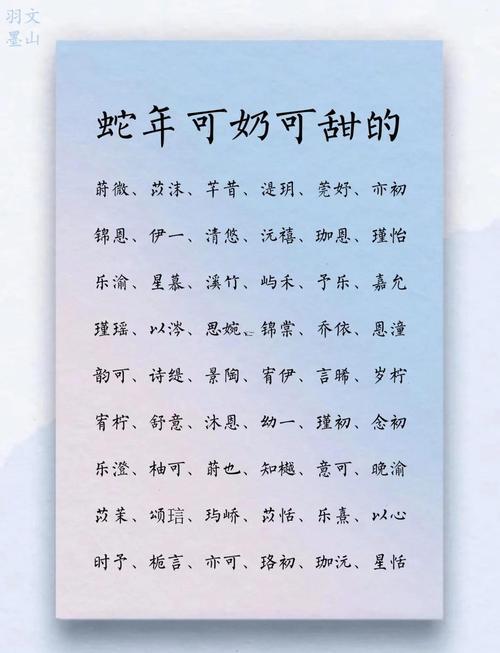 羽文
墨山
蛇年可奶可甜的
蔚微、苡沫、芊昔、湜玥、莞妤、亦初
锦恩、伊一、清悠、沅禧、珈恩、瑾怡
乐渝、星慕、溪竹、屿禾、予乐、嘉允
瑾瑶、以涔、思婉、锦棠、乔依、恩潼
韵可、诗缇、景陶、宥伊、言晞、岁柠
宥柠、舒意、沐恩、幼一、瑾初、念初
乐澄、柚可、蔚也、知樾、意可、晚渝
苡茉、颂琂、玙峤、苡恬、乐熹、以心
时予、栀言、亦可、珞初、珈沅、星恬